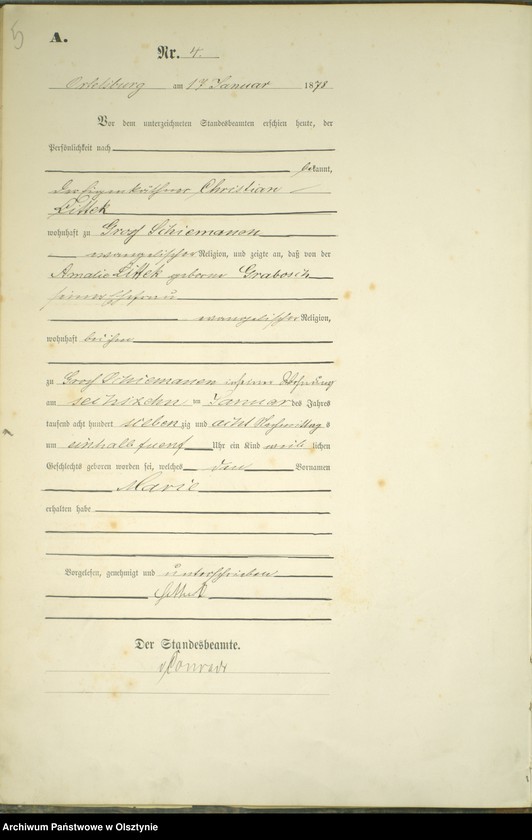 5
A.
Nr. 4.
Ortelsburg am 17 Januar 1878
Vor dem unterzeichneten Standesbeamten erschien heute, der
Persönlichkeit nach
bekannt,
der Eigenkäthner Christian
Littek
wohnhaft zu Groß Schiemanen
evangelischer Religion, und zeigte an, daß von der
Amalie Littek geborne Grabosch
seiner Ehefrau
evangelischer Religion,
wohnhaft bei ihm
zu Groß Schiemanen in seiner Wohnung
am sechszehn ten Januar des Jahres
tausend acht hundert siebenzig und acht Nachmittags
um einhalb fuenf Uhr ein Kind weib lichen
Geschlechts geboren worden sei, welches den Vornamen
Marie
erhalten habe
Vorgelesen, genehmigt und unterschrieben
Der Standesbeamte.
Conrad
Archiwum Państwowe w Olsztynie